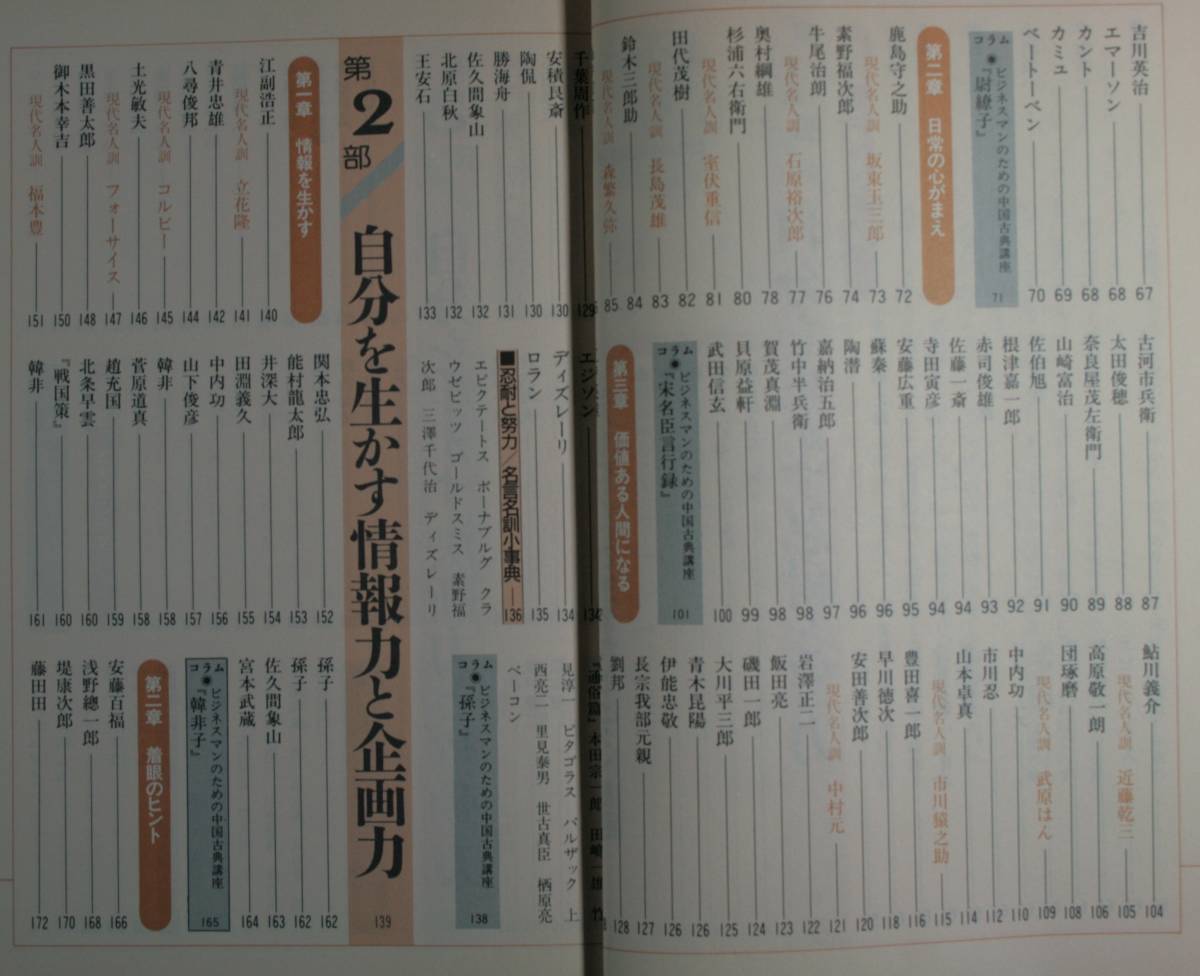 吉川英治 67
エマーソン 68
カント 68
カミュ 69
ベートーベン 70
コラム●ビジネスマンのための中国古典講座
『尉繚子』 71
第二章 日常の心がまえ
鹿島守之助 72
現代名人訓 坂東玉三郎 73
素野福次郎 74
牛尾治朗 76
現代名人訓 石原裕次郎 77
奥村綱雄 78
杉浦六右衛門 80
現代名人訓 室伏重信 81
田代茂樹 82
現代名人訓 長島茂雄 83
鈴木三郎助 84
現代名人訓 森繁久弥 85
古河市兵衛 87
太田俊穂 88
奈良屋茂左衛門 89
山崎富治 90
佐伯旭 91
根津嘉一郎 92
赤司俊雄 93
佐藤一斎 94
寺田寅彦 94
安藤広重 95
蘇秦 96
陶潜 96
嘉納治五郎 97
竹中半兵衛 98
賀茂真淵 98
貝原益軒 99
武田信玄 100
コラム●ビジネスマンのための中国古典講座
『宋名臣言行録』 101
第三章 価値ある人間になる
鮎川義介 104
現代名人訓 近藤乾三 105
高原敬一朗 106
団琢磨 108
現代名人訓 武原はん 109
中内功 110
市川忍 112
山本卓真 114
現代名人訓 市川猿之助 115
豊田喜一郎 116
早川徳次 118
安田善次郎 120
現代名人訓 中村元 121
岩澤正二 122
飯田亮 123
磯田一郎 124
大川平三郎 125
青木昆陽 126
伊能忠敬 126
長宗我部元親 127
劉邦 128
千葉周作 129
安積艮斎 130
陶侃 130
勝海舟 131
佐久間象山 132
北原白秋 132
王安石 133
エジソン 134
ディズレーリ 134
ロラン 135
■忍耐と努力／名言名訓小事典 136
エピクテートス ボーナブルグ クラ
ウゼビッツ ゴールドスミス 素野福
次郎 三澤千代治 ディズレーリ
『通俗篇』 本田宗一郎 田崎一雄 竹
見淳一 ピタゴラス バルザック 上
西亮二 里見泰男 世古真臣 栖原亮
ベーコン
コラム●ビジネスマンのための中国古典講座
『孫子』 138
第2部 自分を生かす情報力と企画力 139
第一章 情報を生かす
江副浩正 140
現代名人訓 立花隆 141
青井忠雄 142
八尋俊邦 144
現代名人訓 コルビー 145
土光敏夫 146
現代名人訓 フォーサイス 147
黒田善太郎 148
御木本幸吉 150
現代名人訓 福本豊 151
関本忠弘 152
能村龍太郎 153
井深大 154
田淵義久 155
中内功 156
山下俊彦 157
韓非 158
菅原道真 158
趙充国 159
北条早雲 160
『戦国策』 160
韓非 161
孫子 162
孫子 162
佐久間象山 163
宮本武蔵 164
コラム●ビジネスマンのための中国古典講座
『韓非子』 165
第二章 着眼のヒント
安藤百福 166
浅野總一郎 168
堤康次郎 170
藤田田 172